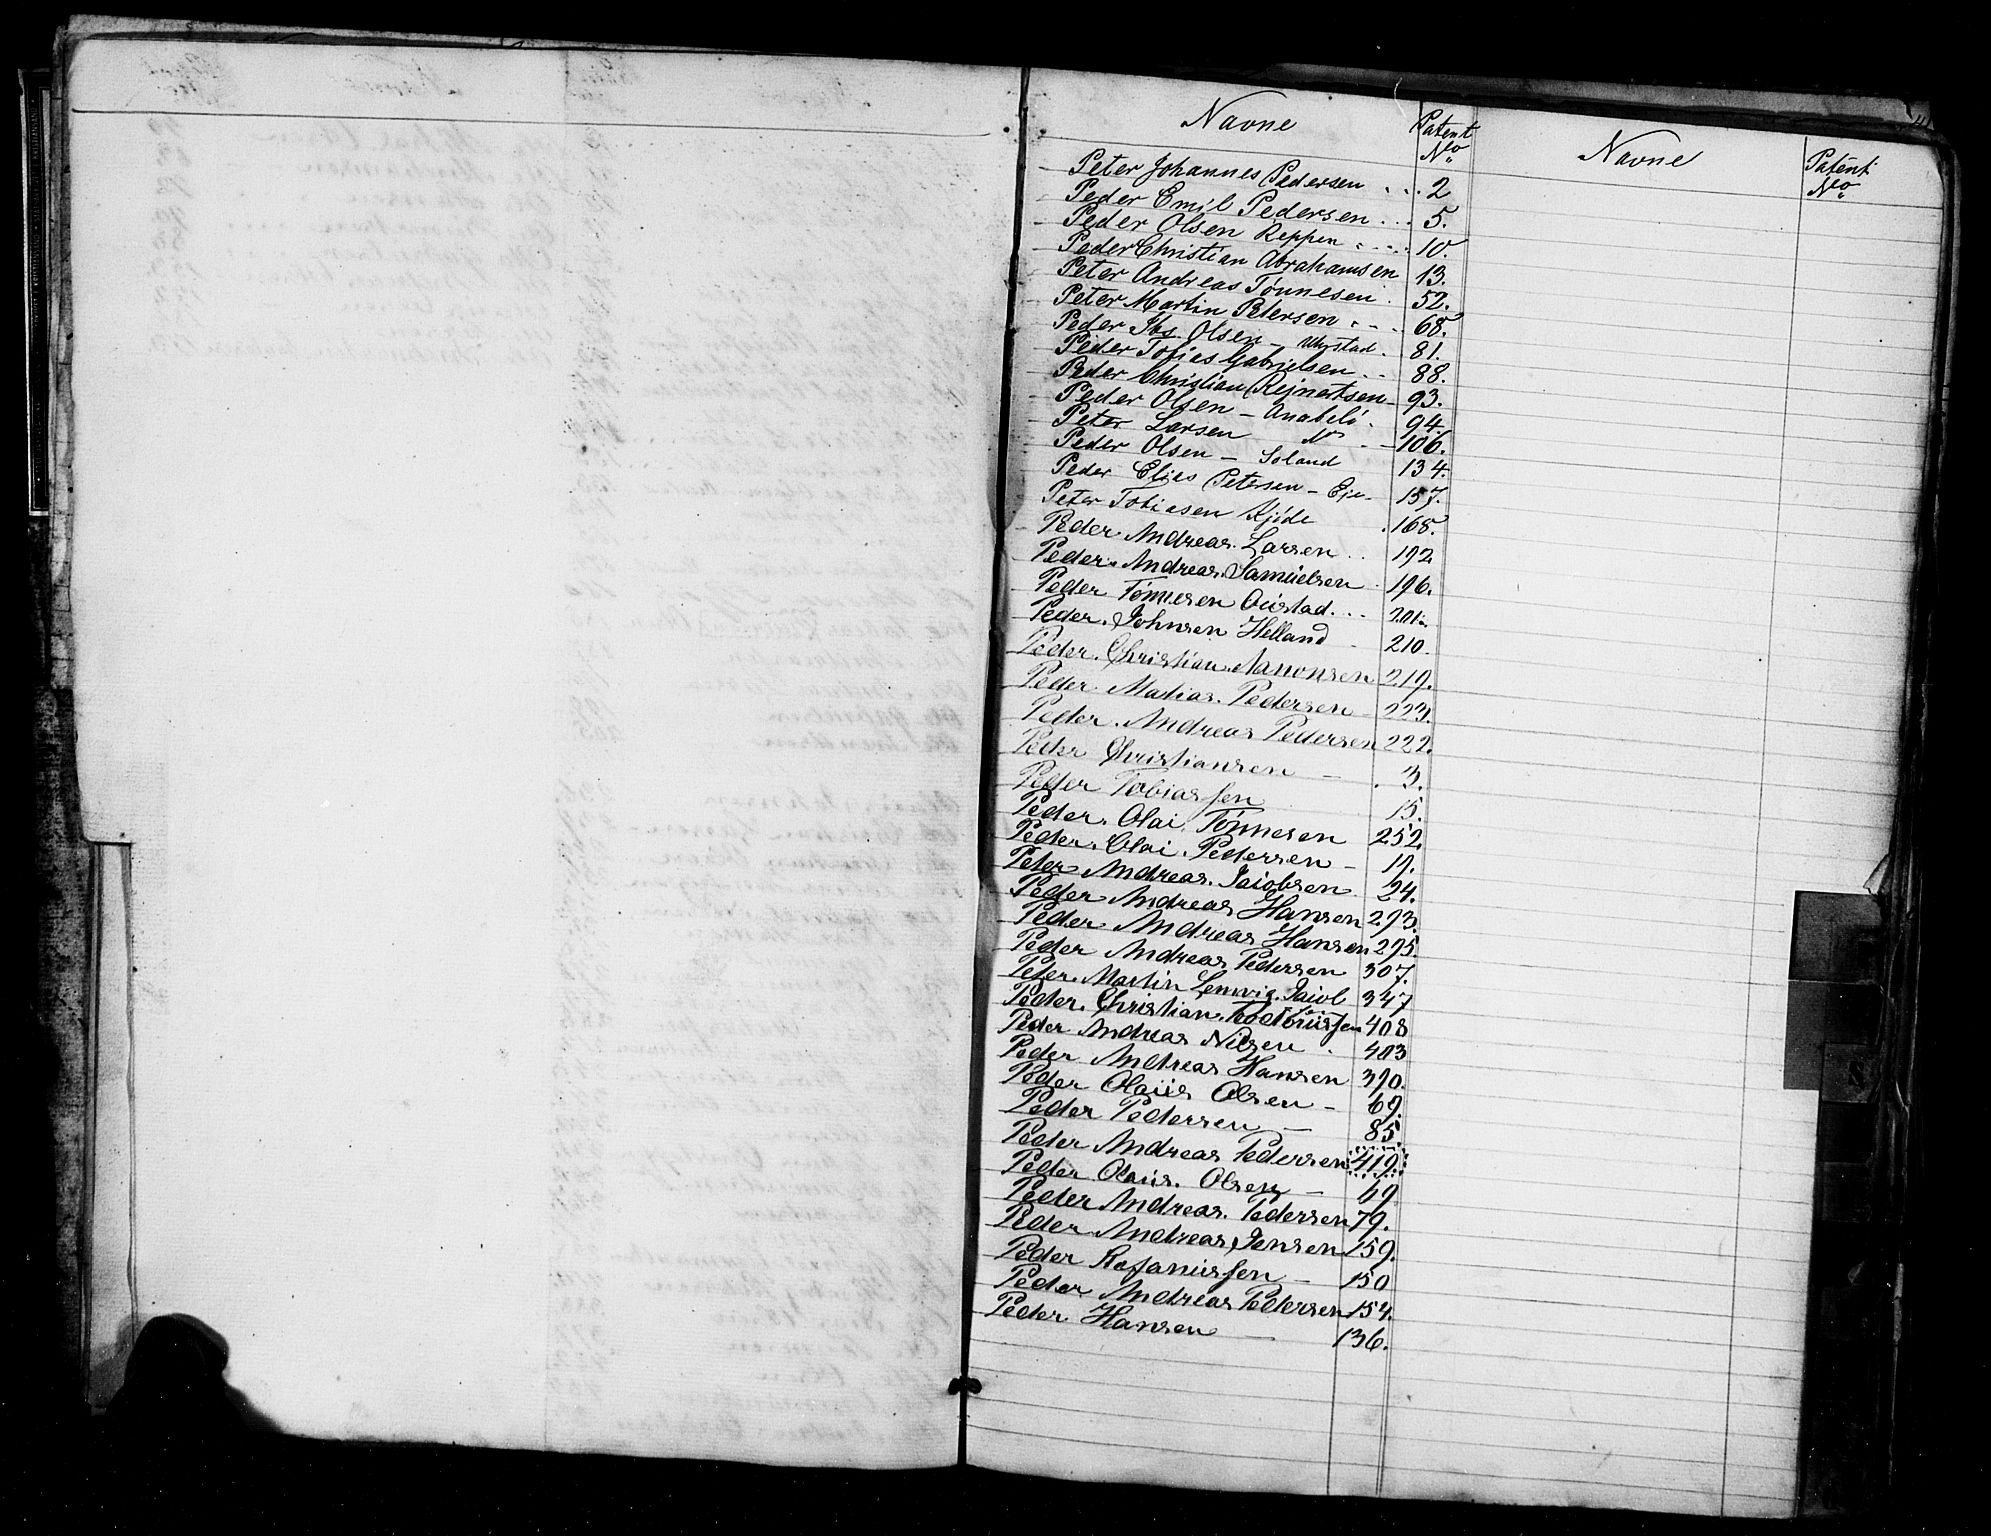 Navne Patent No Navne Patent No
Peter Johannes Pedersen 2
Peder Emil Pedersen 5.
Peder Olsen Reppen 10.
Peder Christian Abrahamsen 13.
Peter Andreas Tönnesen 52.
Peter Martin Petersen 68.
Peder Olsen 81.
Peder Tobias Gabrielsen 88.
Peder Christian Rejnertsen 93.
Peder Olsen - 94.
Peter Larsen 106.
Peder Olsen - Soland 134.
Peder Elias Petersen - Eje 157.
Peter Tobiasen Kjide 168.
Peder Andreas Larsen 192
Peder Andreas Samuelsen 196.
Peder Tönnesen Oustad 201.
Peder Johnsen Helland 210.
Peder Christian Aanonsen 219.
Peder Matias Pedersen 223.
Peder Andreas Pedersen 222.
Peder Christiansen 3.
Peder Tobiassen 15.
Peder Olai Tönnesen 252
Peder Olai Pedersen 19.
Peter Andreas Jaiobsen 24.
Peder Andreas Hansen 293.
Peder Andreas Hansen 295.
Peder Andreas Pedersen 307.
Peter Martin Lemvig Jaiob 347
Peder Christian 408
Peder Andreas Nilsen 403
Peder Andreas Hansen 390.
Peder Olaüs Olsen - 69.
Peder Pedersen - 85.
Peder Andreas Pedersen 419.
Peder Olaüs Olsen - 69
Peder Andreas Pedersen 79.
Peder Andreas Jensen 159.
Peder Rasmussen - 150
Peder Andreas Pedersen 154.
Peder Hansen - 136.